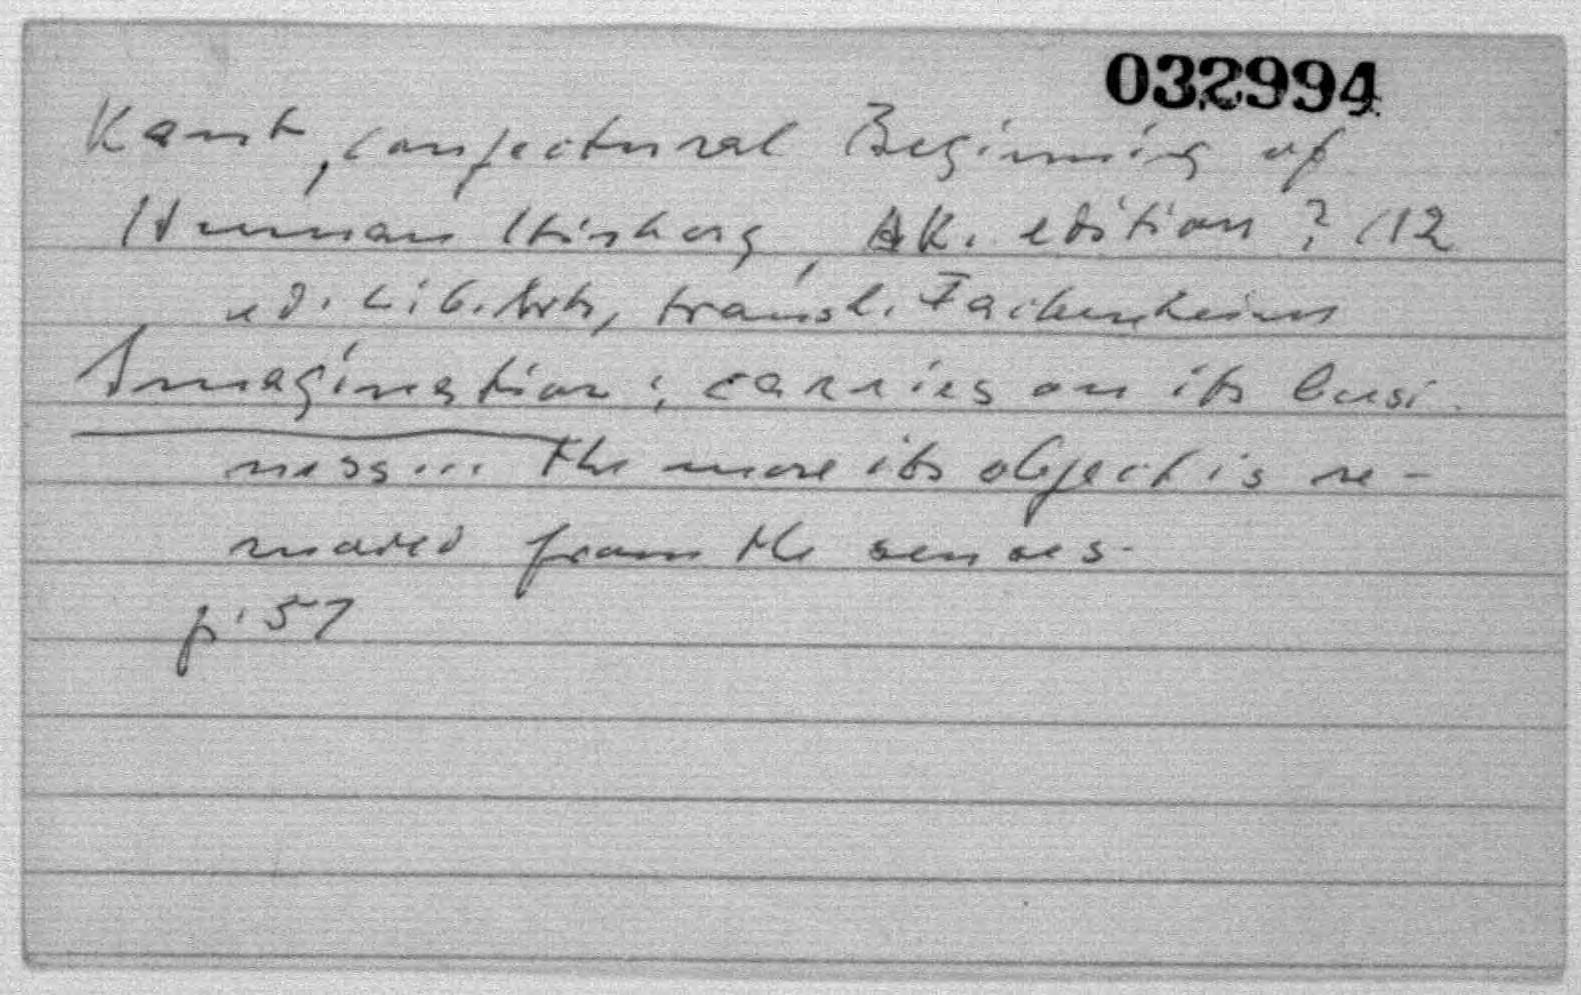 032994
Kant, conjectural Beginning of
Human History, AK. edition? 112
ed. Lib. Arts, transl. Fackenheim
Imagination: carries on its busi-
ness... the more its object is re-
moved from the senses.
p. 57